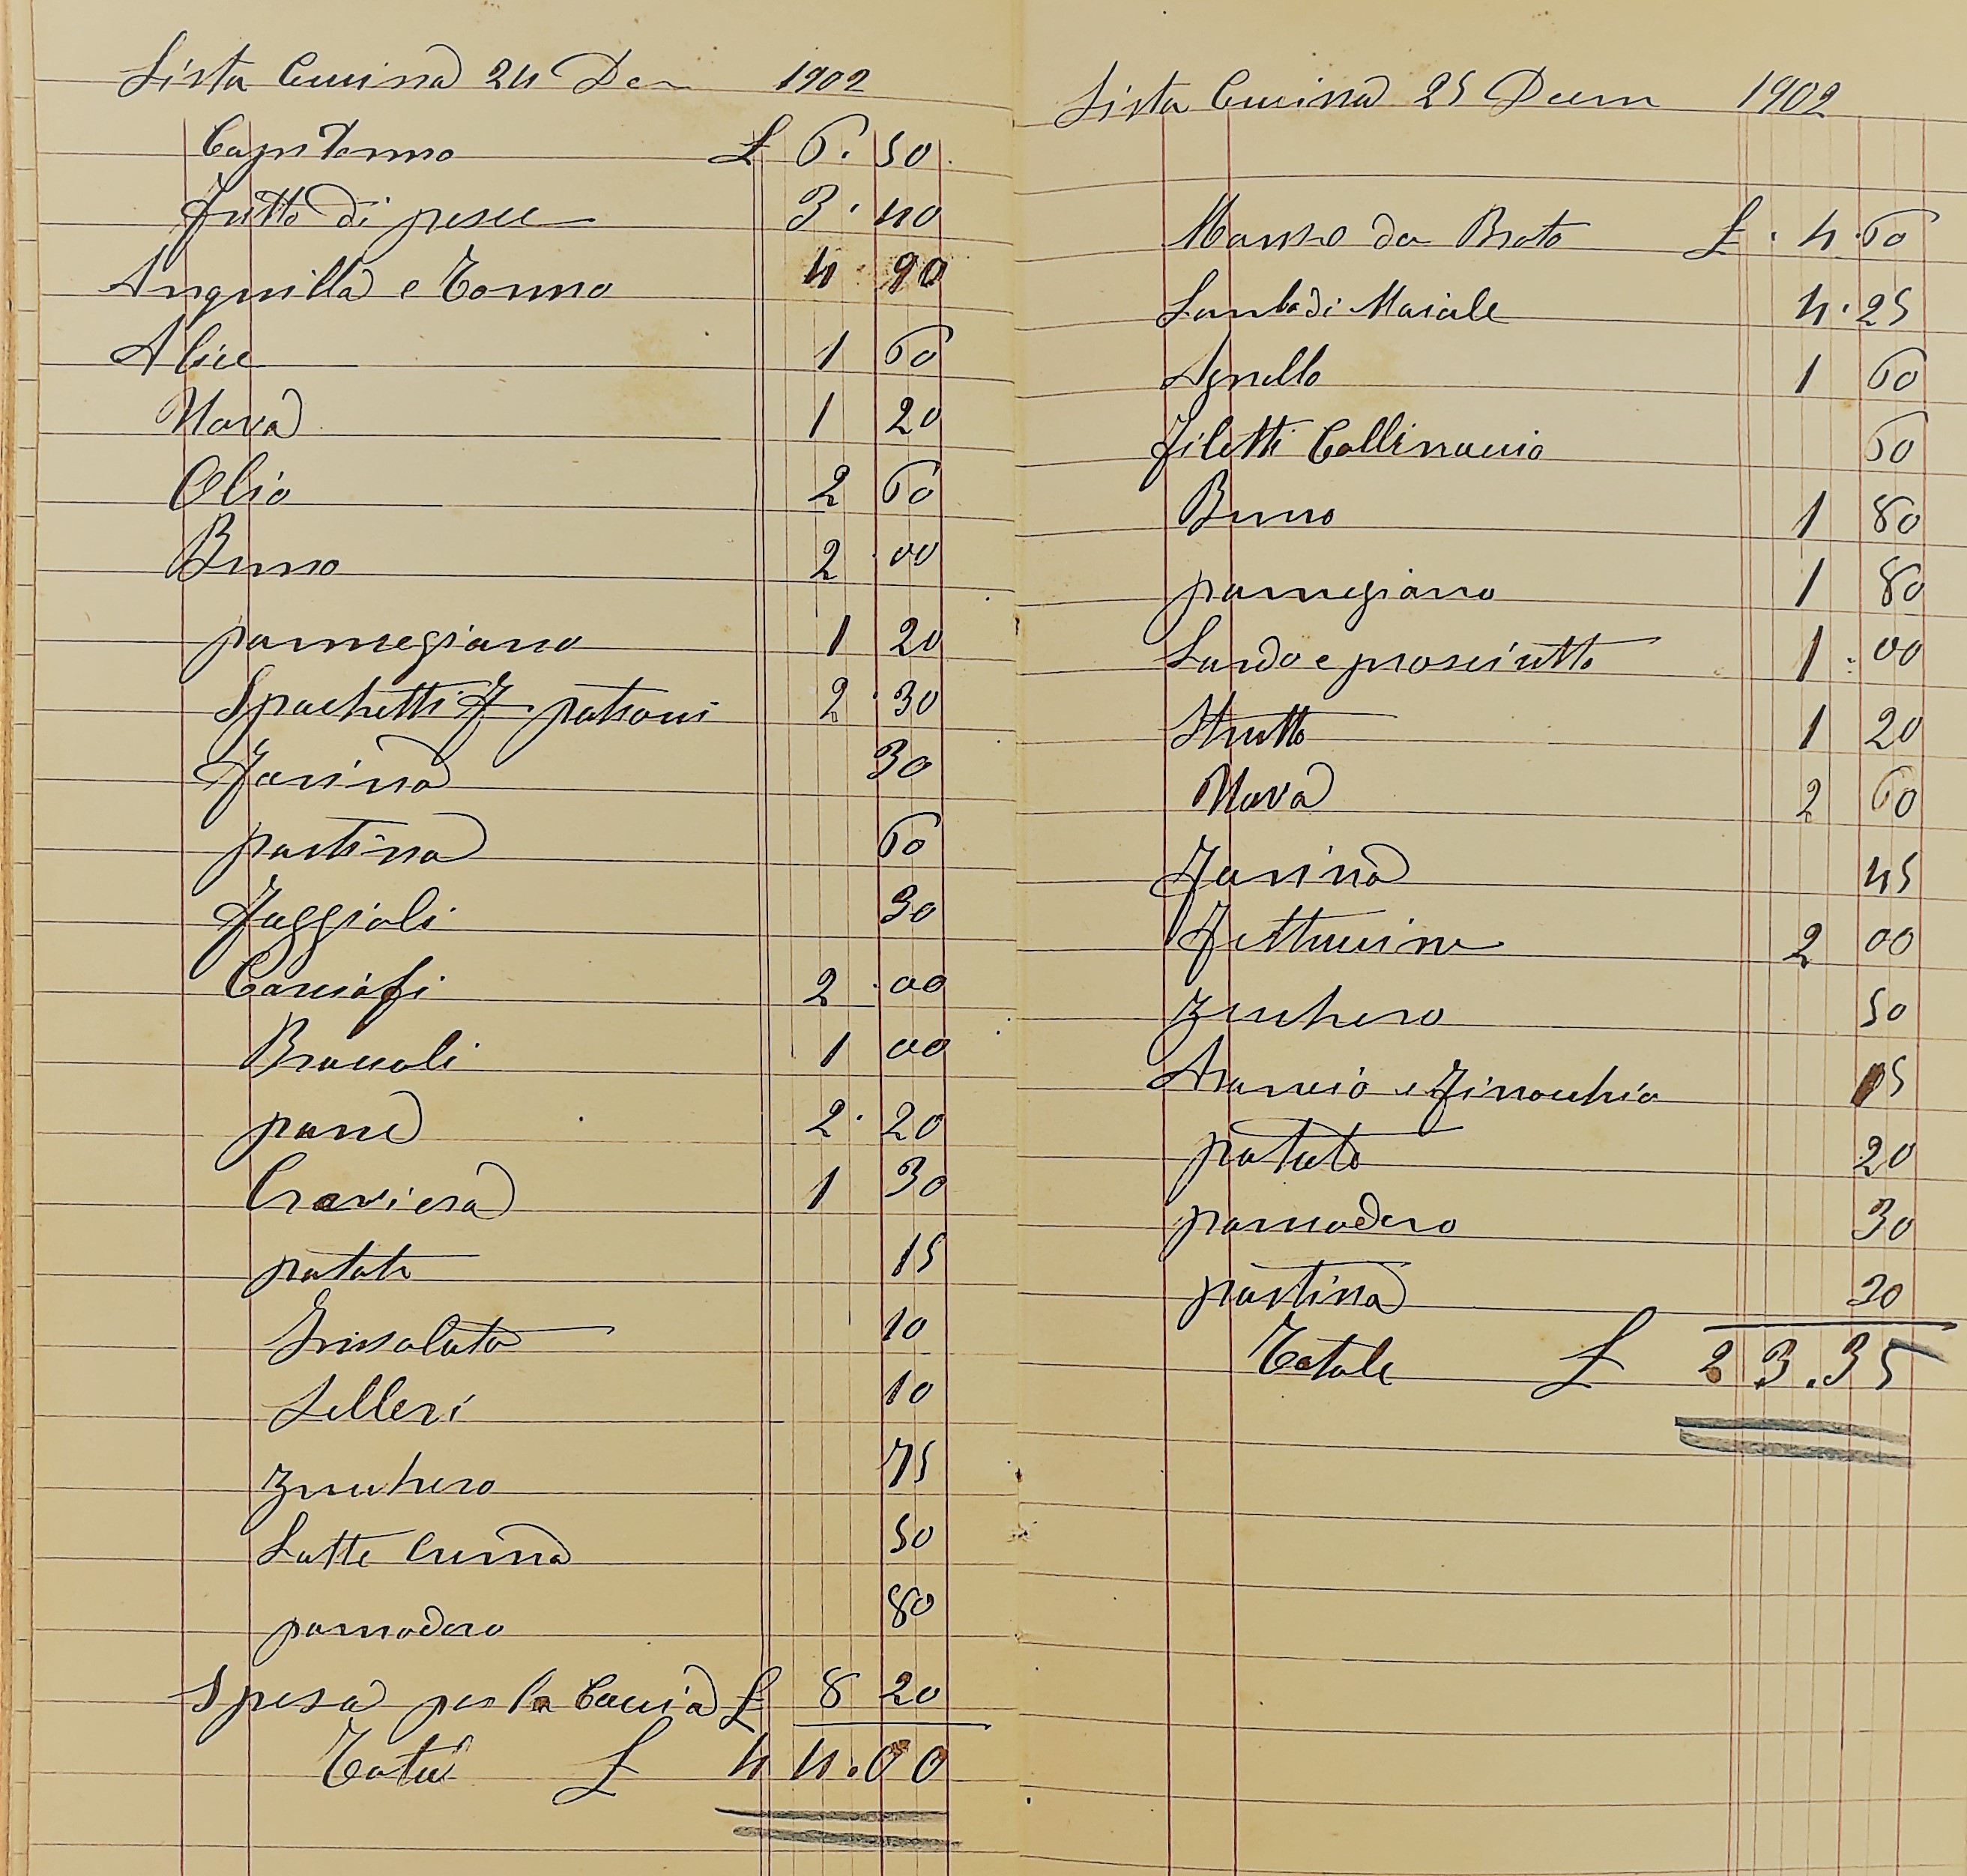 Lista Cucina 24 Dem 1902
Capitonno £ 6. 50
Fritto di pesce 3. 40
Anguilla e Tonno 4 90
Alice 1 60
Nova 1 20
Olio 2 60
Burro 2. 00
parmegiano 1 20
Spachetti F patroni 2. 30
Farina 30
pastina 60
Faggioli 30
Carciofi 2. 00
Broccoli 1 00
pane 2. 20
Craviera 1 30
patate 15
Insalata 10
Selleri 10
Zucchero 75
Latte Crema 50
pomodoro 80
Spesa per la Caccia £ 8 20
Totale £ 44.00
Lista Cucina 25 Decem 1902
Manso da Broto £. 4.60
Lomba di Maiale 4.25
Agnello 1 60
Filetti Gallinaccio 60
Burro 1 80
parmegiano 1 80
Lardo e prosciutto 1. 00
Strutto 1 20
Nova 2 60
Farina 45
Fettuccine 2 00
Zucchero 50
Arancio e Finocchio 15
patate 20
pomodoro 30
pastina 30
Totale £ 23.35